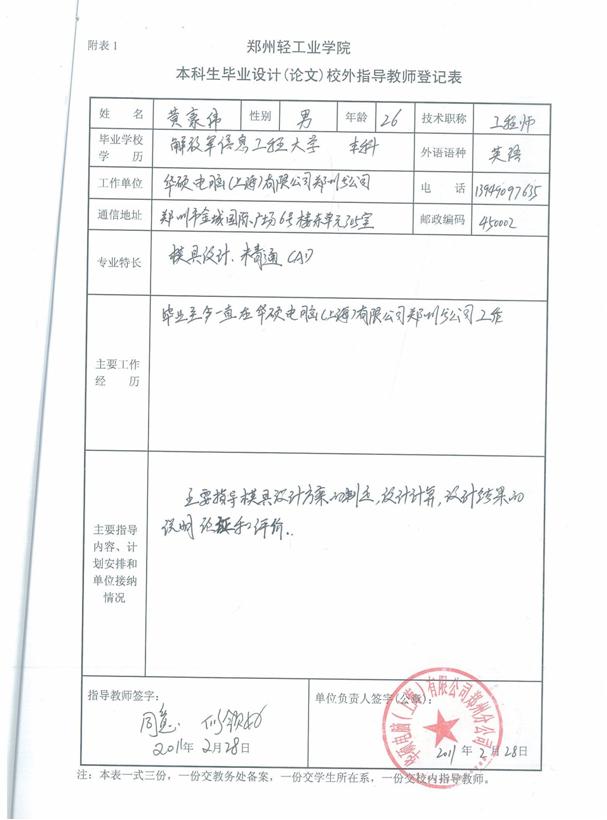 附表1
郑州轻工业学院
本科生毕业设计(论文)校外指导教师登记表
姓 名 黄豪伟 性别 男 年龄 26 技术职称 工程师
毕业学校 学 历 解放军信息工程大学 本科 外语语种 英语
工作单位 华硕电脑(上海)有限公司郑州分公司 电 话 13949097635
通信地址 郑州市金城国际广场6号楼东单元705室 邮政编码 450002
专业特长 模具设计.
主要工作 毕业至今一直在华硕电脑(上海)有限公司郑州分公司工作
经 历
主要指导模具设计方案的制定,设计计算,设计结果的
说明论证和评价.
主要指导
内容、计
划安排和
单位接纳
情况
指导教师签字: 单位负责人签字(公章):
同意.
2011年2月28日 2011年2月28日
华硕电脑(上海)有限公司郑州分公司
注:本表一式三份,一份交教务处备案,一份交学生所在系,一份交校内指导教师。